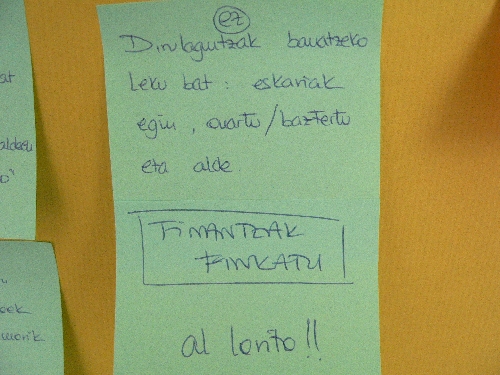 ez
Dirulaguntzak banatzeko
Leku bat: eskariak
egin, onartu/baztertu
eta alde.
FINANTZAK
FINKATU
al lorito!!
at
aldatu
o"
oek